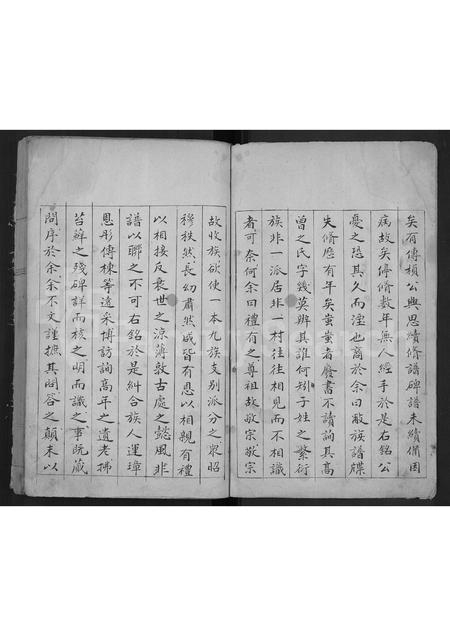 矣有傅楨公興思續修譜碑譜未續備因
病故矣停修數年無人經手於是右銘公
憂之恐其久而湮也商於余曰敝族譜牒
失修歷有年矣蚩蚩者廢書不讀詢其高
曾之氏字幾莫辨其誰何矧子姓之繁衍
族非一派居非一村往往相見而不相識
者可奈何余曰禮有之尊祖故敬宗敬宗
故收族欲使一本九族支別派分之眾昭
穆秩然長幼肅然咸皆有恩以相親有禮
以相接反衰世之涼薄敦古處之懿風非
譜以聯之不可右銘於是糾合族人運璋
恩彤傅棟等遠采博訪詢高年之遺老拂
苔蘚之殘碑詳而核之明而識之事既蕆
問序於余余不文謹撫其問答之顛末以